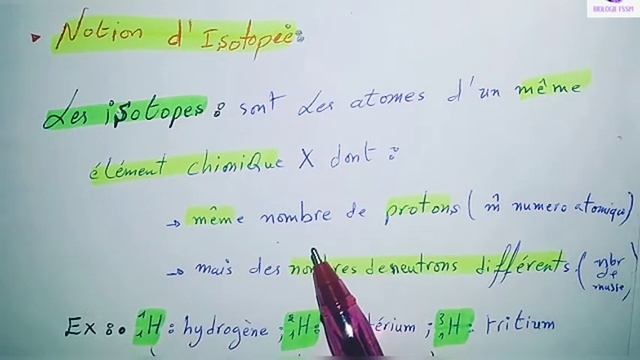 BIOLOGIE FSSM
Notion d'Isotopée:
Les isotopes : sont les atomes d'un même
élément chimique X dont :
→ même nombre de protons ( m̂ numero atomique)
→ mais des nombres de neutrons différents. ( nbr de masse)
Ex : ¹₁H : hydrogène ; ²₁H : térium ; ³₁H : tritium